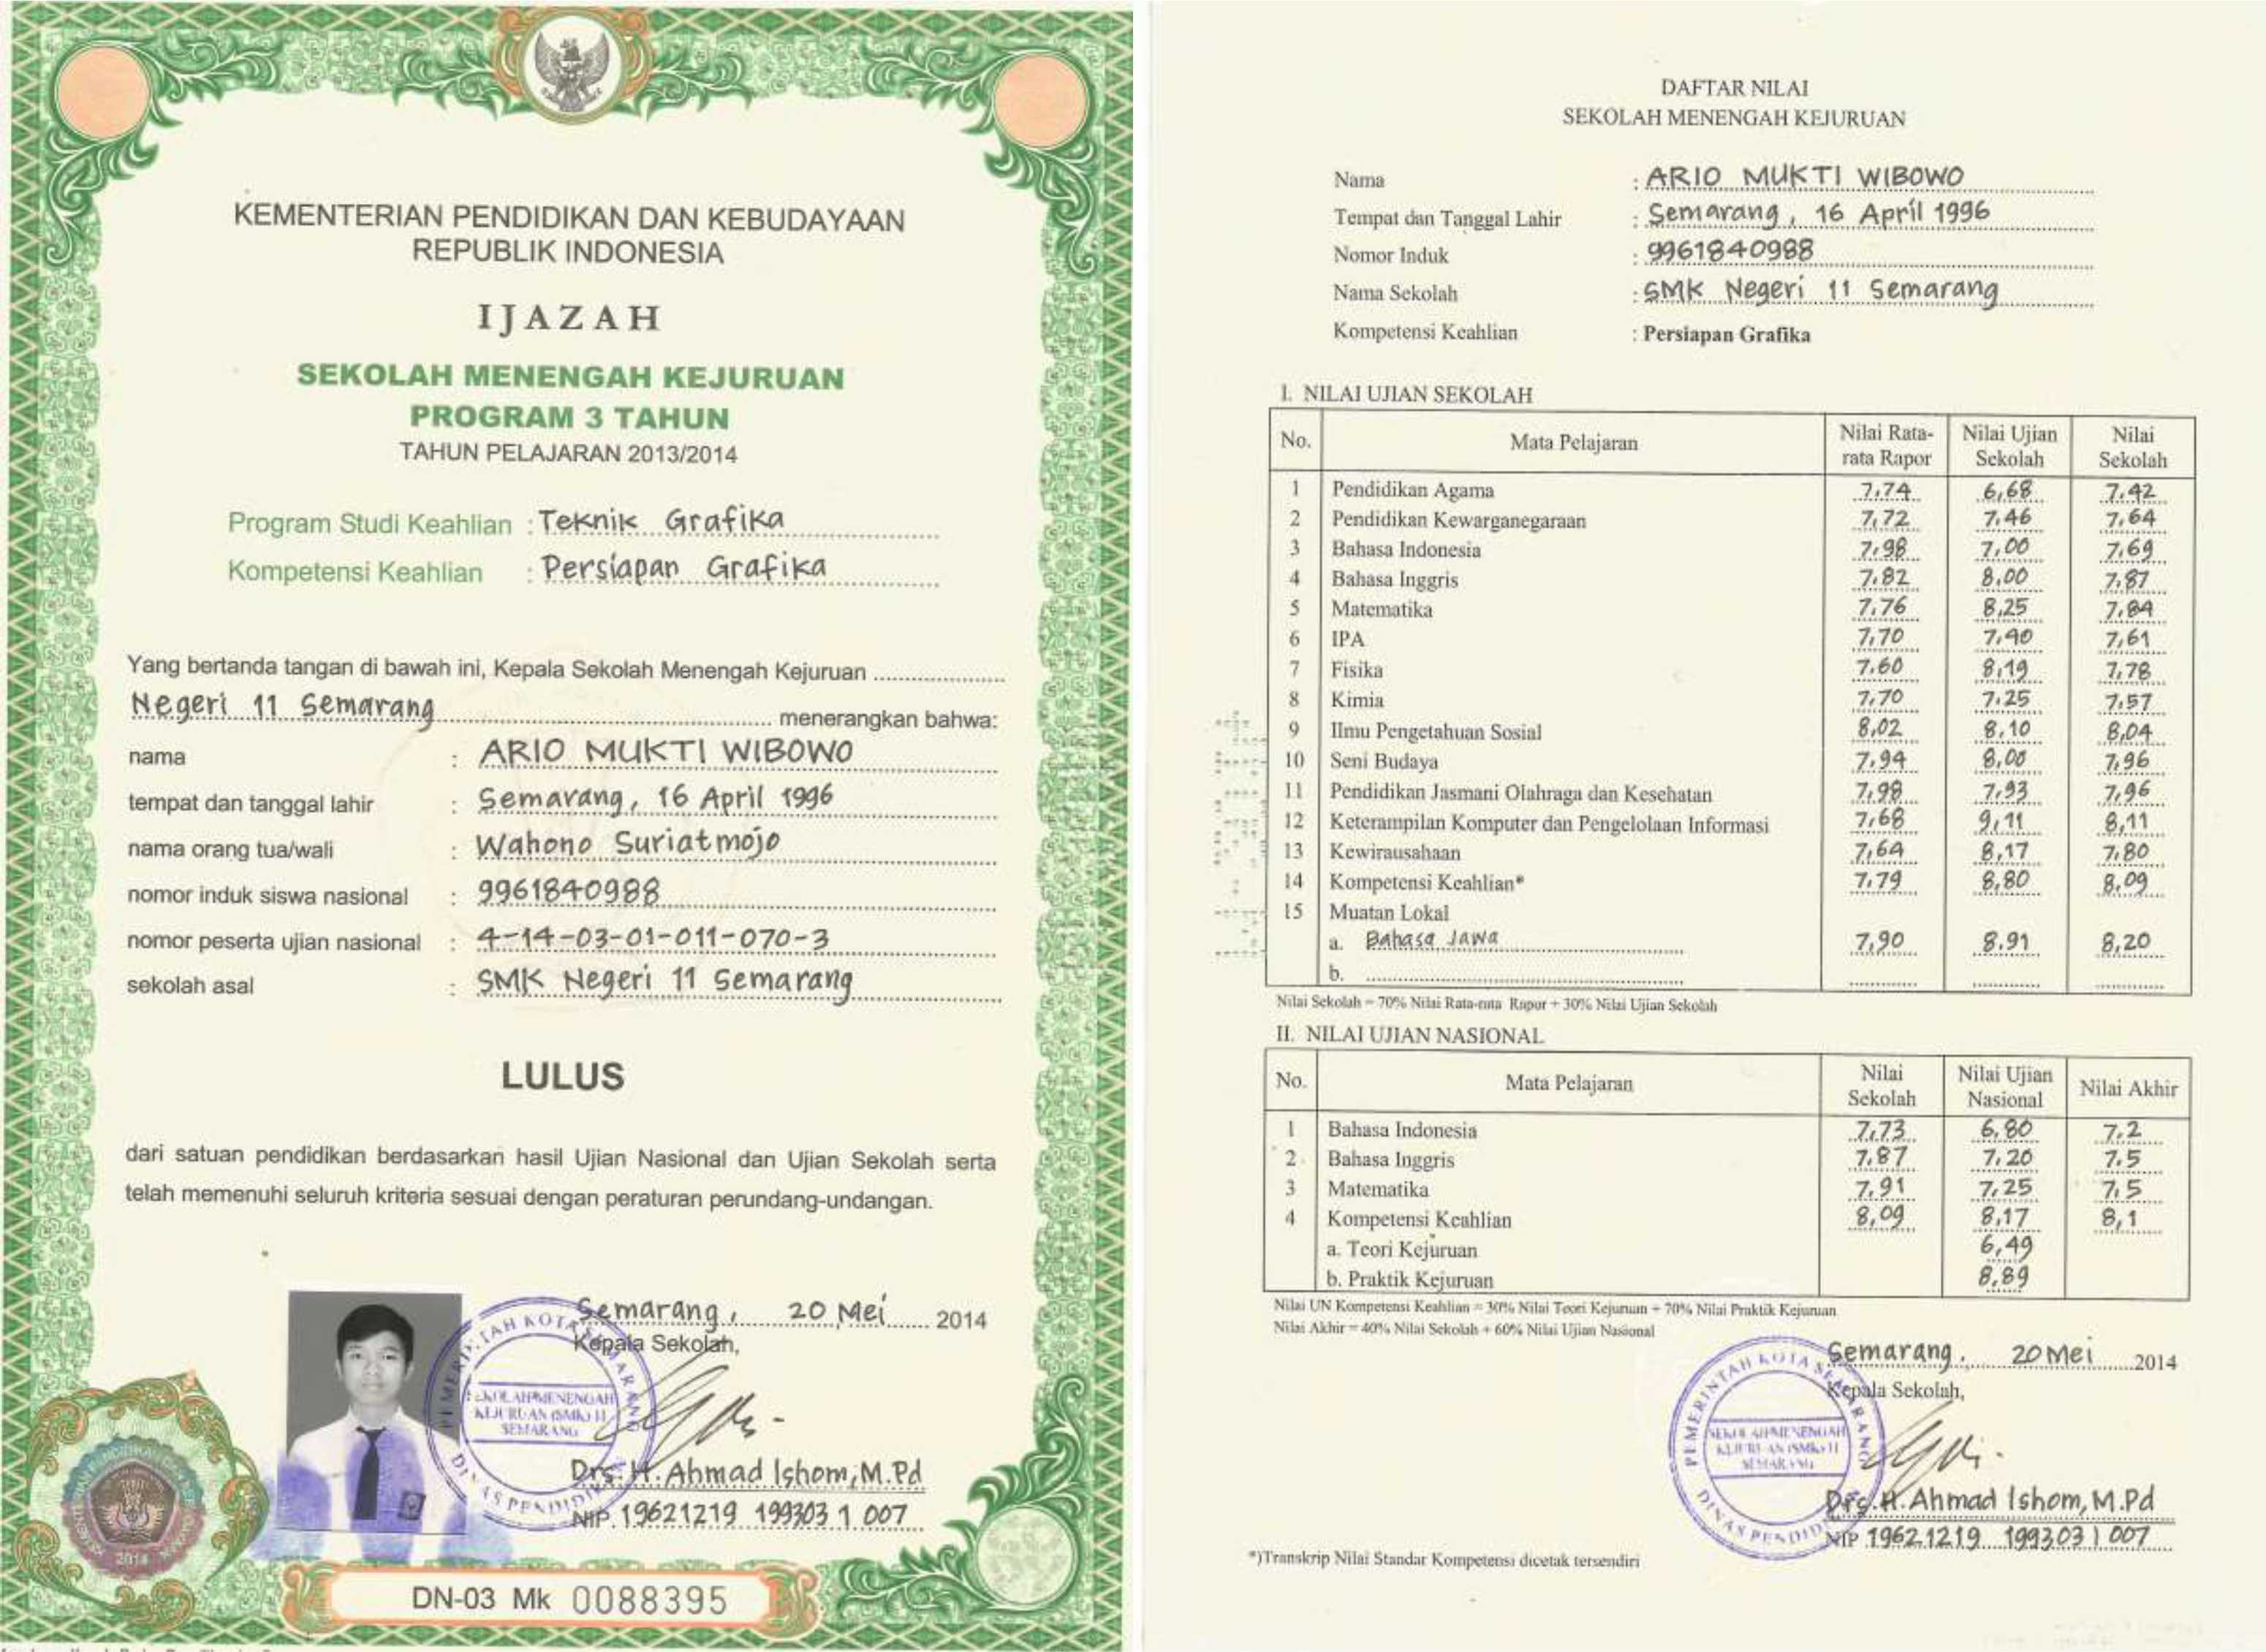 KEMENTERIAN PENDIDIKAN DAN KEBUDAYAAN
REPUBLIK INDONESIA
IJAZAH
SEKOLAH MENENGAH KEJURUAN
PROGRAM 3 TAHUN
TAHUN PELAJARAN 2013/2014
Program Studi Keahlian : Teknik Grafika
Kompetensi Keahlian : Persiapan Grafika
Yang bertanda tangan di bawah ini, Kepala Sekolah Menengah Kejuruan
Negeri 11 Semarang menerangkan bahwa:
nama : ARIO MUKTI WIBOWO
tempat dan tanggal lahir : Semarang, 16 April 1996
nama orang tua/wali : Wahono Suriatmojo
nomor induk siswa nasional : 9961840988
nomor peserta ujian nasional : 4-14-03-01-011-070-3
sekolah asal : SMK Negeri 11 Semarang
LULUS
dari satuan pendidikan berdasarkan hasil Ujian Nasional dan Ujian Sekolah serta
telah memenuhi seluruh kriteria sesuai dengan peraturan perundang-undangan.
Semarang, 20 Mei 2014
Kepala Sekolah,
PEMERINTAH KOTA SEMARANG
SEKOLAH MENENGAH
KEJURUAN (SMK) 11
SEMARANG
DINAS PENDIDIKAN
Drs. H. Ahmad Ishom, M.Pd
NIP. 19621219 199303 1 007
2014
DN-03 Mk 0088395
DAFTAR NILAI
SEKOLAH MENENGAH KEJURUAN
Nama : ARIO MUKTI WIBOWO
Tempat dan Tanggal Lahir : Semarang, 16 April 1996
Nomor Induk : 9961840988
Nama Sekolah : SMK Negeri 11 Semarang
Kompetensi Keahlian : Persiapan Grafika
I. NILAI UJIAN SEKOLAH
No. Mata Pelajaran Nilai Rata-rata Rapor Nilai Ujian Sekolah Nilai Sekolah
1 Pendidikan Agama 7,74 6,68 7,42
2 Pendidikan Kewarganegaraan 7,72 7,46 7,64
3 Bahasa Indonesia 7,98 7,00 7,69
4 Bahasa Inggris 7,82 8,00 7,87
5 Matematika 7,76 8,25 7,84
6 IPA 7,70 7,40 7,61
7 Fisika 7,60 8,19 7,78
8 Kimia 7,70 7,25 7,57
9 Ilmu Pengetahuan Sosial 8,02 8,10 8,04
10 Seni Budaya 7,94 8,00 7,96
11 Pendidikan Jasmani Olahraga dan Kesehatan 7,98 7,93 7,96
12 Keterampilan Komputer dan Pengelolaan Informasi 7,68 9,11 8,11
13 Kewirausahaan 7,64 8,17 7,80
14 Kompetensi Keahlian* 7,79 8,80 8,09
15 Muatan Lokal
a. Bahasa Jawa 7,90 8,91 8,20
b.
Nilai Sekolah = 70% Nilai Rata-rata Rapor + 30% Nilai Ujian Sekolah
II. NILAI UJIAN NASIONAL
No. Mata Pelajaran Nilai Sekolah Nilai Ujian Nasional Nilai Akhir
1 Bahasa Indonesia 7,73 6,80 7,2
2 Bahasa Inggris 7,87 7,20 7,5
3 Matematika 7,91 7,25 7,5
4 Kompetensi Keahlian 8,09 8,17 8,1
a. Teori Kejuruan 6,49
b. Praktik Kejuruan 8,89
Nilai UN Kompetensi Keahlian = 30% Nilai Teori Kejuruan + 70% Nilai Praktik Kejuruan
Nilai Akhir = 40% Nilai Sekolah + 60% Nilai Ujian Nasional
Semarang, 20 Mei 2014
Kepala Sekolah,
PEMERINTAH KOTA SEMARANG
SEKOLAH MENENGAH
KEJURUAN (SMK) 11
SEMARANG
DINAS PENDIDIKAN
Drs. H. Ahmad Ishom, M.Pd
NIP 19621219 199303 1 007
*)Transkrip Nilai Standar Kompetensi dicetak tersendiri